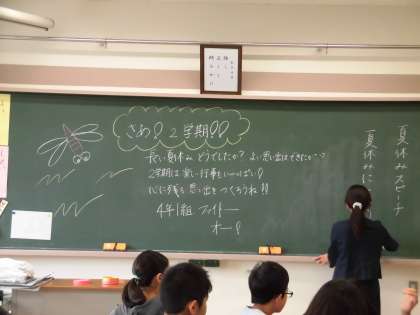 さあ！2学期！！
長い夏休み どうでしたか？ よい思い出はできたかな？
2学期は 楽しい行事もいーっぱい！
心に残る 思い出をつくろうね！！
4年1組 ファイトー
オー！
夏休みスピーチ
夏休みに